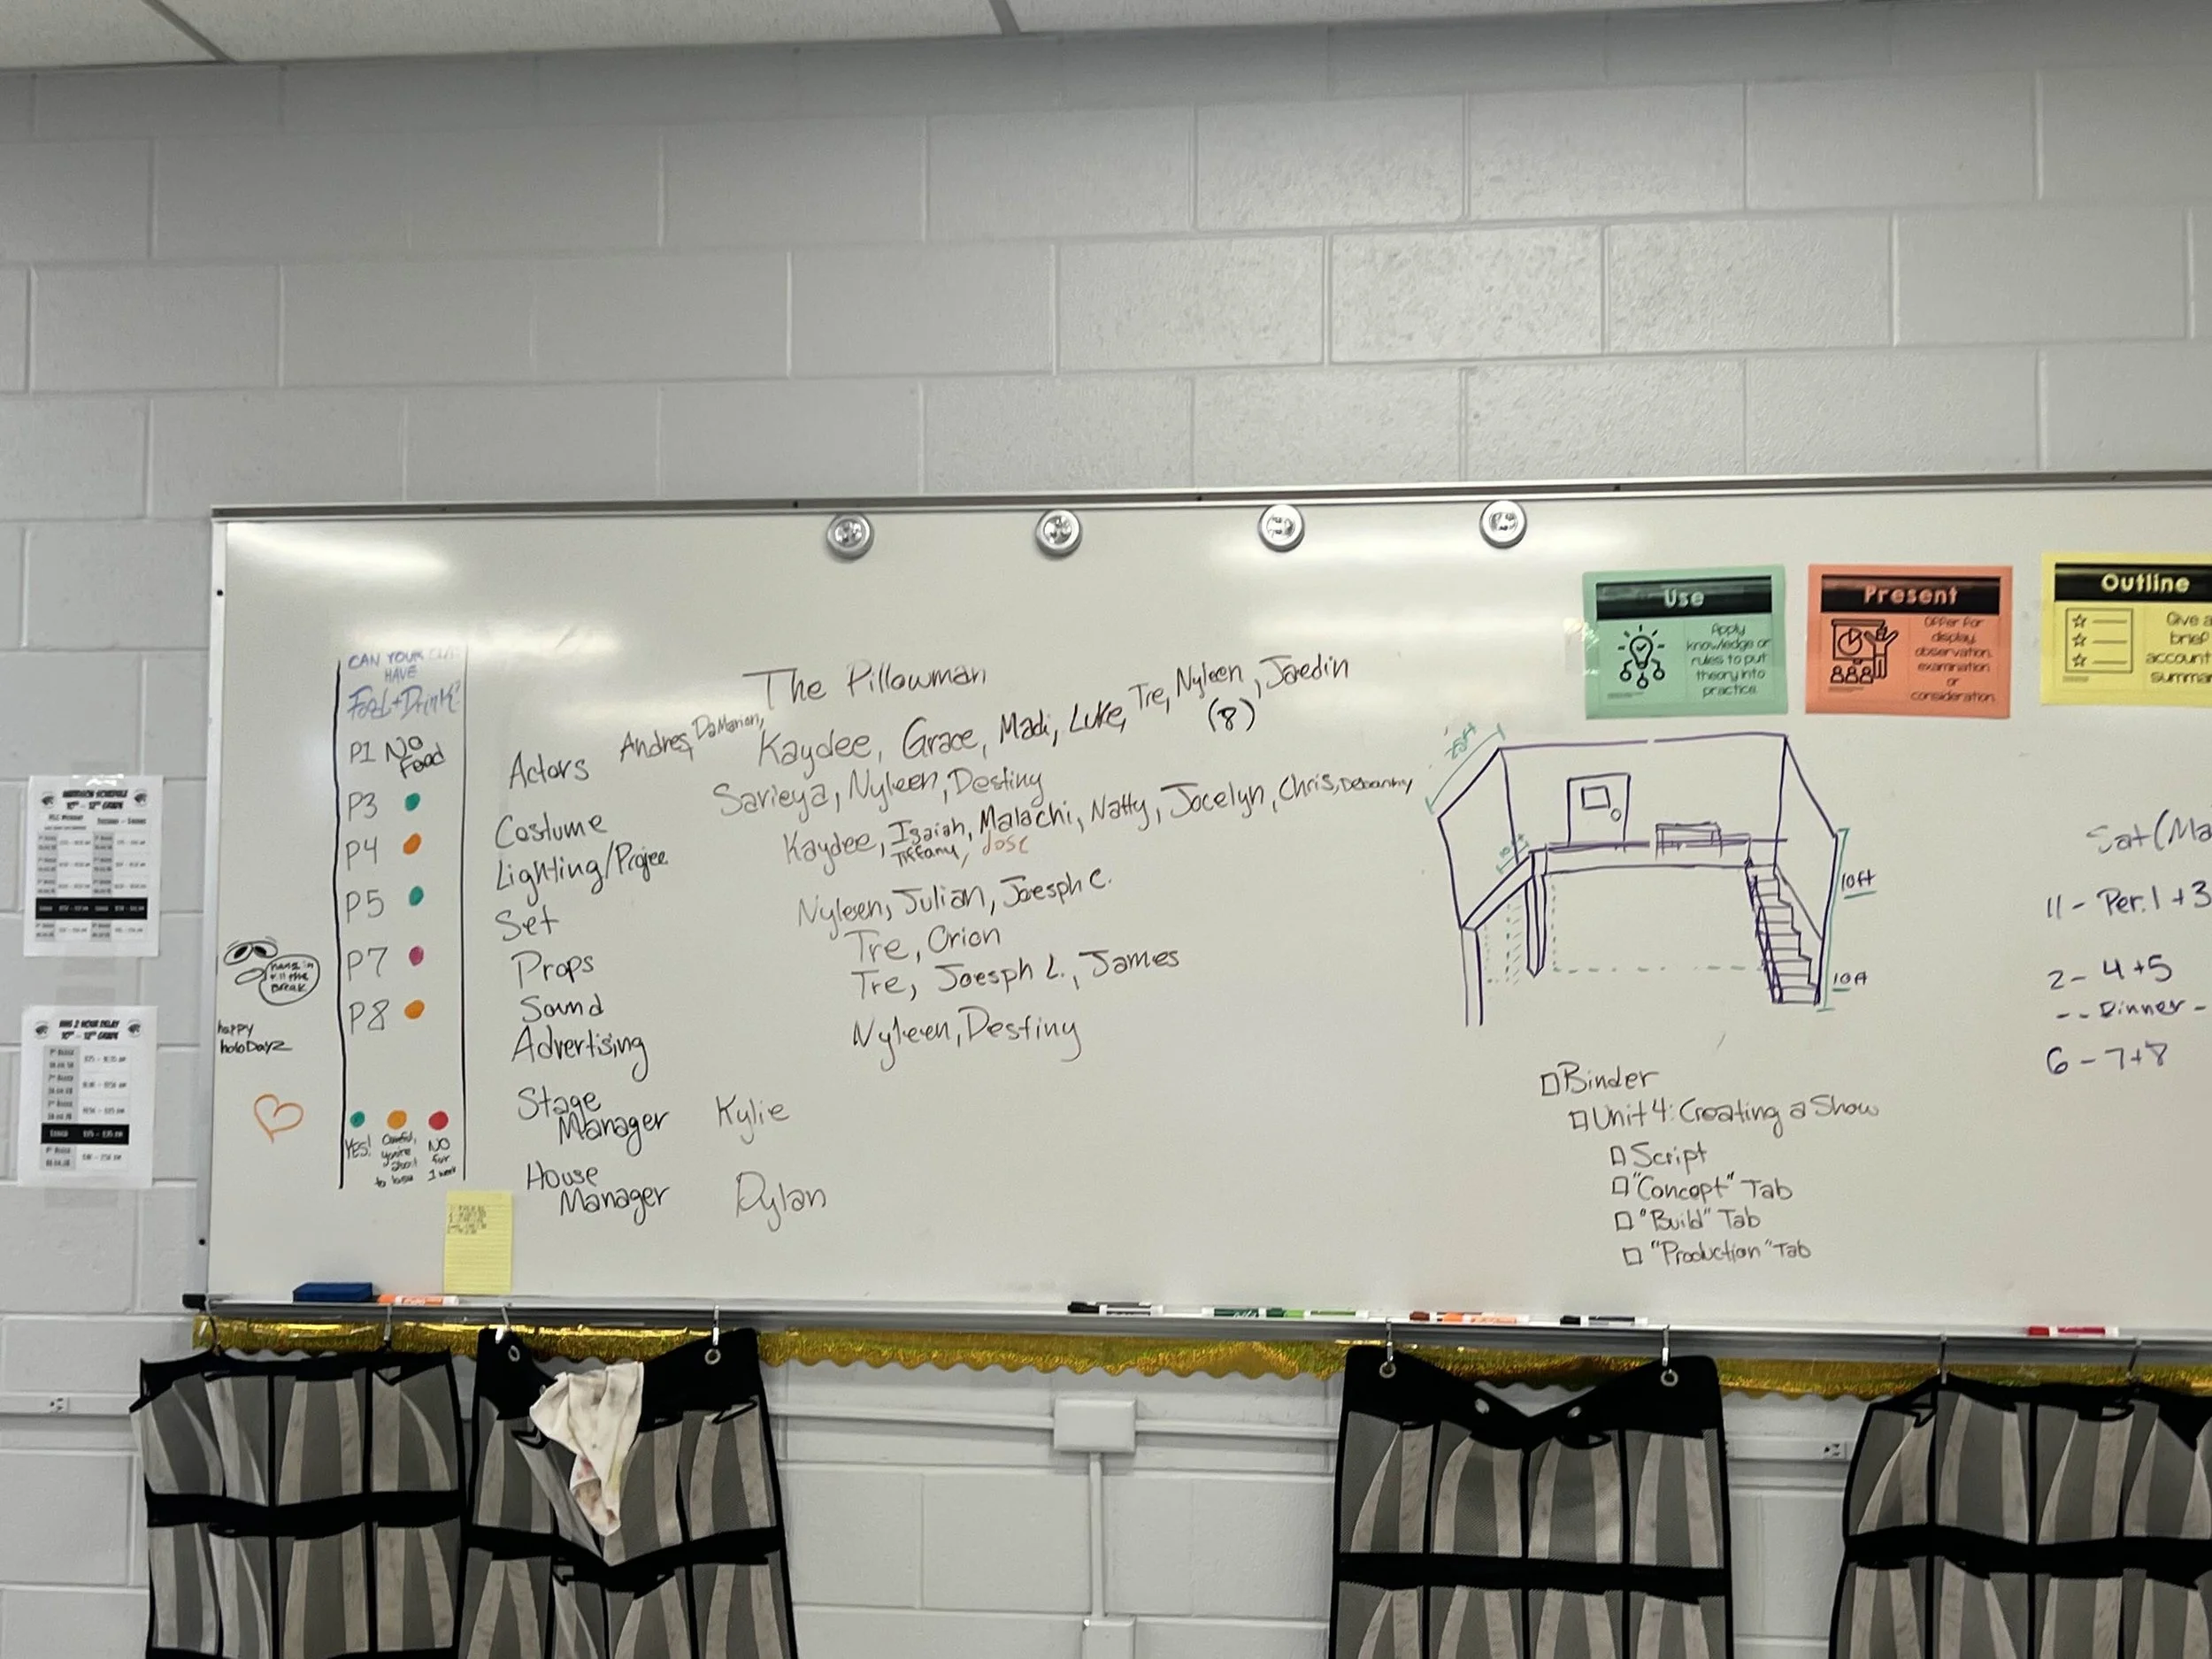 CAN YOUR
HAVE
Food + Drink?
P1 No Food
P3
P4
P5
P7
P8
YES!
NO for 1 week
hang in till the BREAK
happy holoDayz
The Pillowman
Actors Andres, DaMarion, Kaydee, Grace, Madi, Luke, Tre, Nyleen, Jaedin
(8)
Costume Savieya, Nyleen, Destiny
Lighting/Projec Kaydee, Isaiah, Malachi, Natty, Jocelyn, Chris,
Tiffany, Jose
Set Nyleen, Julian, Joesph C.
Props Tre, Orion
Sound Tre, Joesph L., James
Advertising Nyleen, Destiny
Stage Manager Kylie
House Manager Dylan
Use
Apply
knowledge or
rules to put
theory into
practice.
Present
Offer for
display,
observation,
examination
or
consideration.
Outline
Give a
brief
account
summar
10ft
10ft
Binder
Unit 4: Creating a Show
Script
"Concept" Tab
"Build" Tab
"Production" Tab
Sat (Ma
11 - Per. 1 + 3
2 - 4 + 5
-- Dinner -
6 - 7 + 8